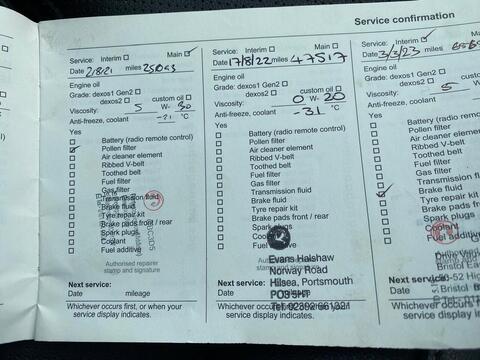 Service confirmation
Service: Interim Main
Date 2/8/21 miles
Engine oil
Grade: dexos1 Gen2
dexos2 custom oil
Viscosity: 5 W- 30
Anti-freeze, coolant -31 °C
Yes
Battery (radio remote control)
Pollen filter
Air cleaner element
Ribbed V-belt
Toothed belt
Fuel filter
Gas filter
Transmission fluid
Brake fluid
Tyre repair kit
Brake pads front / rear
Spark plugs
Coolant
Fuel additive
Authorised repairer
stamp and signature
Next service:
Date mileage
Whichever occurs first, or when your
service display indicates.
Service: Interim Main
Date 17/8/22 miles 47517
Engine oil
Grade: dexos1 Gen2
dexos2 custom oil
Viscosity: 0 W- 20
Anti-freeze, coolant -31 °C
Yes
Battery (radio remote control)
Pollen filter
Air cleaner element
Ribbed V-belt
Toothed belt
Fuel filter
Gas filter
Transmission fluid
Brake fluid
Tyre repair kit
Brake pads front / rear
Spark plugs
Fuel additive
Evans Halshaw
Norway Road
Hilsea, Portsmouth
PO3 5HT
Next service:
Date
Whichever occurs first, or when your
service display indicates.
Service: Interim
Date 3/3/23 miles
Engine oil
Grade: dexos1 Gen2
dexos2
Viscosity: 5
Anti-freeze, coolant
Yes
Battery (radio remote
Pollen filter
Air cleaner element
Ribbed V-belt
Toothed belt
Fuel filter
Gas filter
Transmission fluid
Brake fluid
Tyre repair kit
Brake pads fron
Spark plugs
Coolant
Fuel additi
Next service:
Date
Whichever occurs
service display in